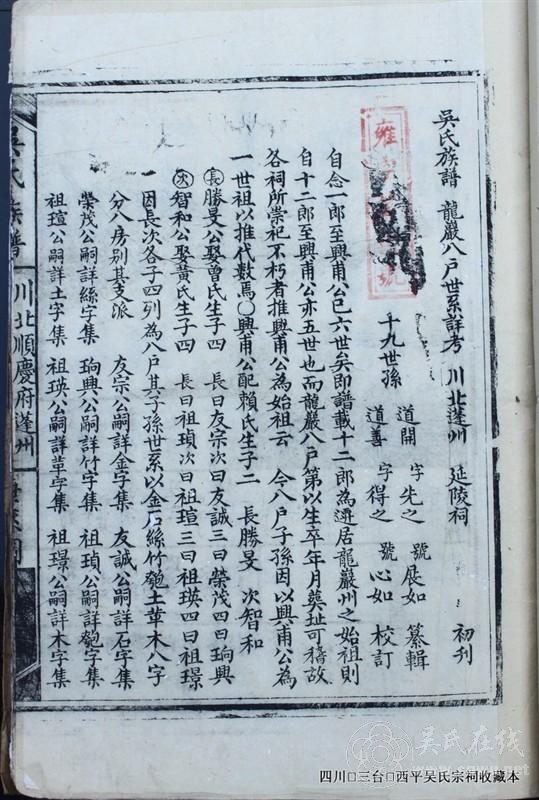 吳氏族譜 龍巖八戶世系詳考 川北蓬州 延陵祠 初刊
十九世孫 道開 字先之 號展如 纂輯
道善 字得之 號心如 校訂
自念一郎至興甫公已六世矣即譜載十二郎為遷居龍巖州之始祖則
自十二郎至興甫公亦五世也而龍巖八戶第以生卒年月塟址可稽故
各祠所崇祀不朽者推興甫公為始祖云 今八戶子孫因以興甫公為
一世祖以推代數焉○興甫公配賴氏生子二 長勝旻 次智和
長 勝旻公娶曾氏生子四 長曰友宗次曰友誠三曰榮茂四曰珦興
次 智和公娶黃氏生子四 長曰祖瑱次曰祖瑄三曰祖瑛四曰祖璟
一因長次各子四列為八戶其子孫世系以金石絲竹匏土革木八字
分八房別其支派 友宗公嗣詳金字集 友誠公嗣詳石字集
榮茂公嗣詳絲字集 珦興公嗣詳竹字集 祖瑱公嗣詳匏字集
祖瑄公嗣詳土字集 祖瑛公嗣詳革字集 祖璟公嗣詳木字集
吳氏族譜 川北順慶府蓬州
吴氏在线
四川□三台□西平吴氏宗祠收藏本